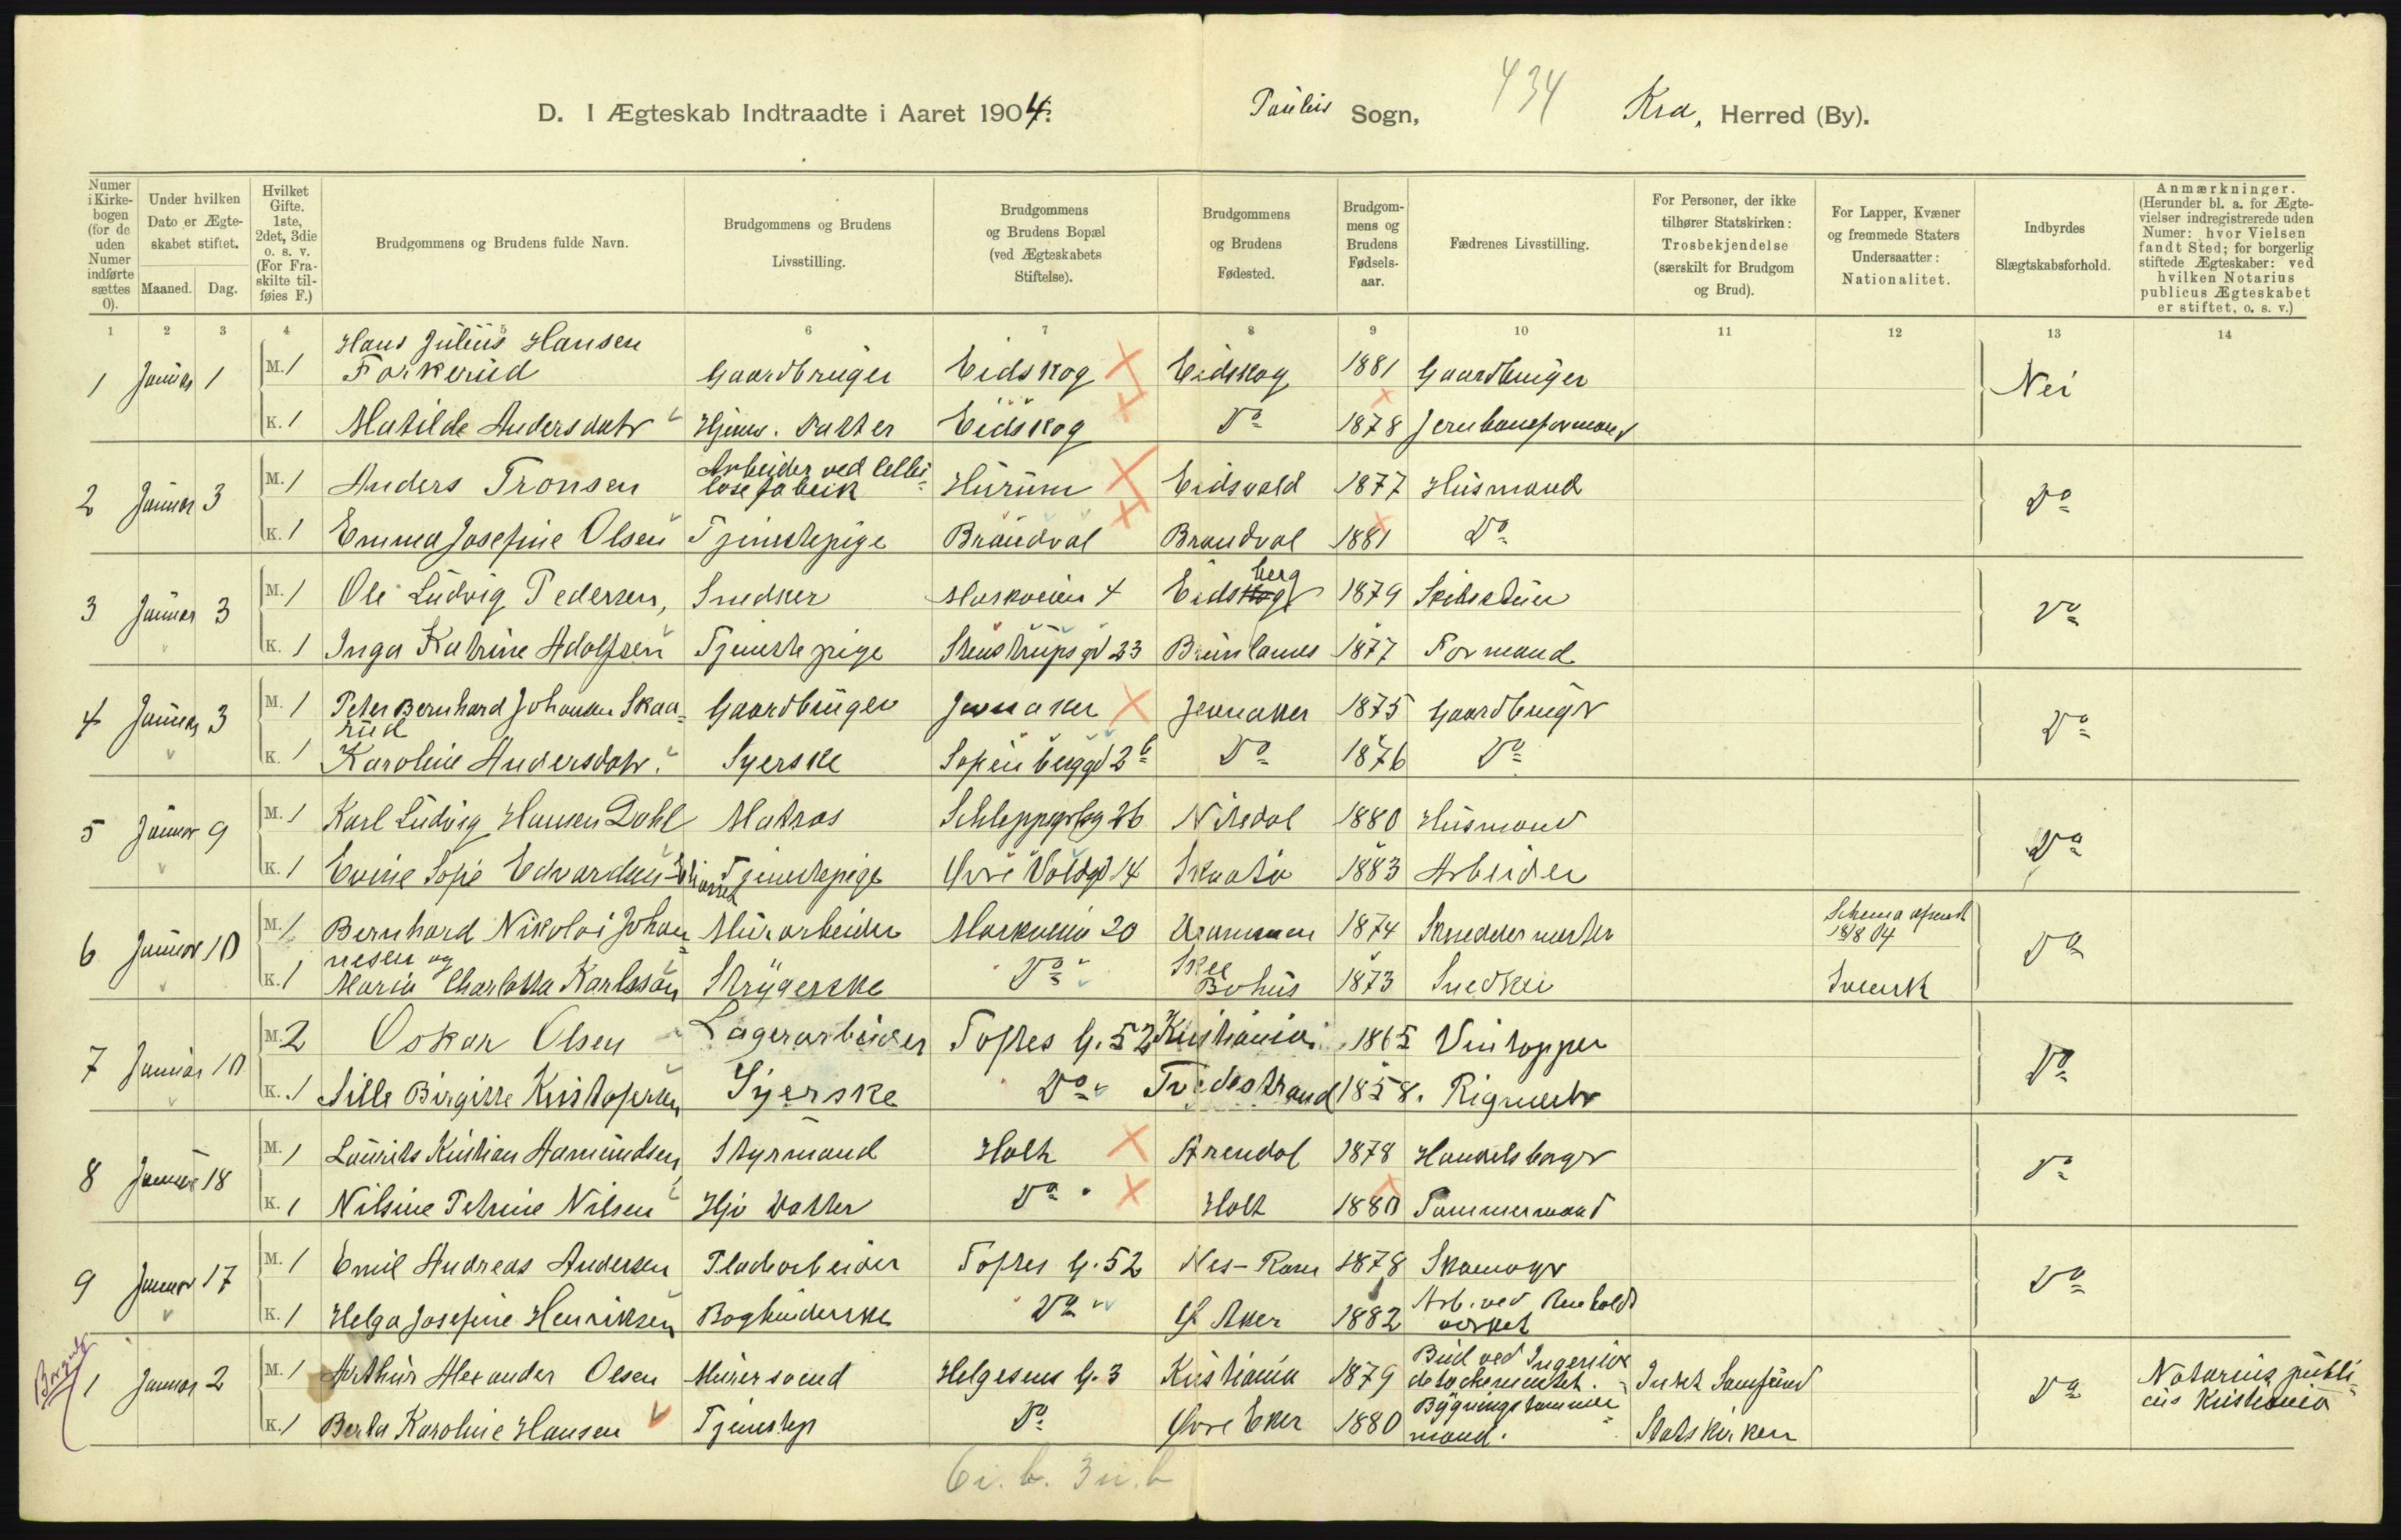 D. I Ægteskab Indtraadte i Aaret 1904. Paulus Sogn, 434 Kra, Herred (By).
Numer i Kirkebogen (for de uden Numer indførte sættes 0).
Under hvilken Dato er Ægteskabet stiftet.
Maaned. Dag.
Hvilket Gifte. 1ste, 2det, 3die o. s. v. (For Fraskilte tilføies F.)
Brudgommens og Brudens fulde Navn.
Brudgommens og Brudens Livsstilling.
Brudgommens og Brudens Bopæl (ved Ægteskabets Stiftelse).
Brudgommens og Brudens Fødested.
Brudgommens og Brudens Fødselsaar.
Fædrenes Livsstilling.
For Personer, der ikke tilhører Statskirken: Trosbekjendelse (særskilt for Brudgom og Brud).
For Lapper, Kvæner og fremmede Staters Undersaatter: Nationalitet.
Indbyrdes Slægtskabsforhold.
Anmærkninger. (Herunder bl. a. for Ægtevielser indregistrerede uden Numer: hvor Vielsen fandt Sted; for borgerlig stiftede Ægteskaber: ved hvilken Notarius publicus Ægteskabet er stiftet, o. s. v.)
1 2 3 4 5 6 7 8 9 10 11 12 13 14
1 Januar 1 M. 1 Hans Julius Hansen Forkerud Gaardbruger Eidskog Eidskog 1881 Gaardbruger Nei
K. 1 Matilde Andersdatr Hjemv. Datter Eidskog Do 1878 Jernbaneformand
2 Januar 3 M. 1 Anders Tronsen Arbeider ved Cellulosefabrik Hurum Eidsvold 1877 Husmand Do
K. 1 Emma Josefine Olsen Tjenestepige Brandval Brandval 1881 Do
3 Januar 3 M. 1 Ole Ludvig Pedersen, Snedker Markveien 4 Eidsberg 1879 Skibstuer Do
K. 1 Inga Katrine Adolfsen Tjenestepige Stenstrupsgd 23 Brunlanes 1877 Formand
4 Januar 3 M. 1 Peter Bernhard Johansen Skaarud Gaardbruger Jevnaker Jevnaker 1875 Gaardbrugr Do
K. 1 Karoline Andersdatr. Syerske Sofienberggd 2b Do 1876 Do
5 Januar 9 M. 1 Karl Ludvig Hansen Dahl Matros Schleppegrlsg 26 Nitedal 1880 Husmand Do
K. 1 Evine Sofie Edvardsen Tjenestepige Øvre Voldgd 14 Skaatø 1883 Arbeider
6 Januar 10 M. 1 Bernhard Nikolai Johannesen og Murarbeider Markveien 20 Drammen 1874 Skreddermester Schema afsendt 18/8 04 Do
K. 1 Maria Charlotta Karlsson Strygerske Do Skee Bohus 1873 Snedker Svensk
7 Januar 10 M. 2 Oskar Olsen Lagerarbeider Toftes G. 52 Kristiania 1865 Vintapper Do
K. 1 Sille Birgitte Kristofersen Syerske Do Tvedestrand 1858. Rigmestr
8 Januar 18 M. 1 Laurits Kristian Aamundsen Styrmand Holt Arendal 1878 Handelsborgr Do
K. 1 Nilsine Petrine Nilsen Hjv Datter Do Holt 1880 Tømmermand
9 Januar 17 M. 1 Emil Andreas Andersen Pladsarbeider Toftes G. 52 Nes-Rom 1878 Skomagr Do
K. 1 Helga Josefine Henriksen Bogbinderske Do Ø. Aker 1882 Arb. ved Renholdsverket
Borgerlig 1 Januar 2 M. 1 Arthur Alexander Olsen Murersvend Helgesens G. 3 Kristiania 1879 Bud ved Ingeniørdetachementet. Intet Samfund Do Notarius publicus Kristiania
K. 1 Berta Karoline Hansen Tjenestep Do Øvre Eker 1880 Bygningstømmermand. Statskirken
6 i. b. 3 u. b